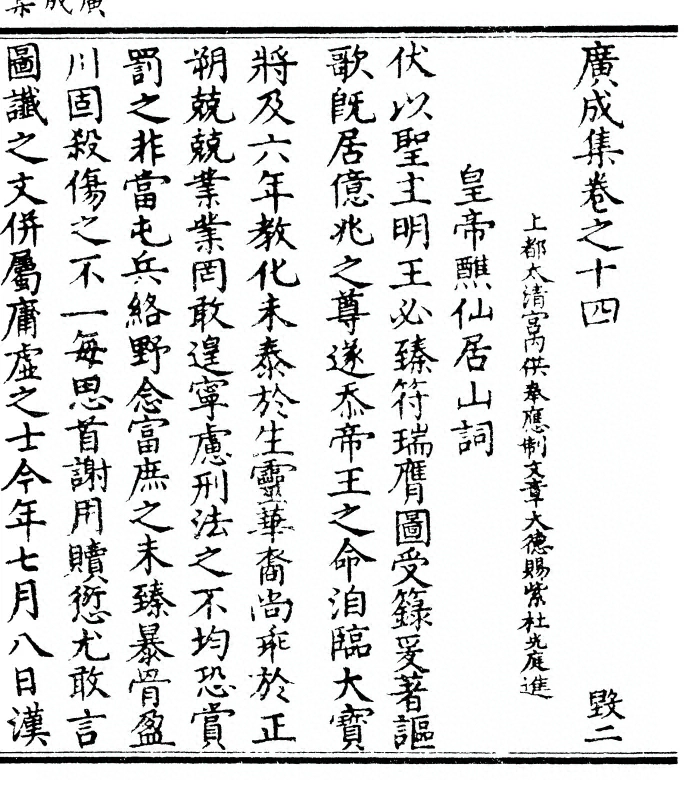 廣成集卷之十四 毀二
上都太清宮內供奉應制文章大德賜紫杜光庭進
皇帝醮仙居山詞
伏以聖主明王必臻符瑞膺圖受籙爰著謳
歌旣居億兆之尊遂忝帝王之命洎臨大寶
將及六年教化未泰於生靈華裔尚乖於正
朔兢兢業業罔敢遑寧慮刑法之不均恐賞
罰之非當屯兵絡野念富庶之未臻暴骨盈
川固殺傷之不一每思首謝用贖愆尤敢言
圖讖之文併屬庸虛之士今年七月八日漢